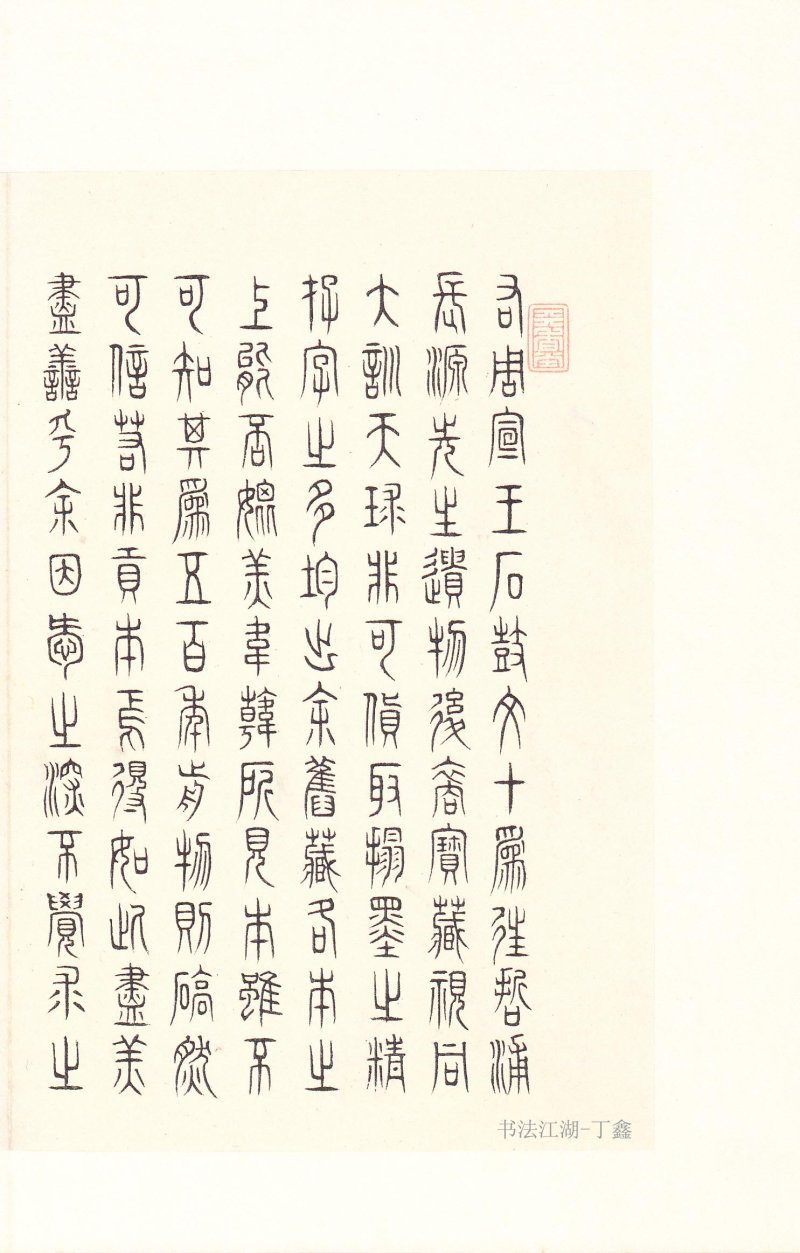 右周宣王石鼓文十為往哲浦
長源先生遺物後裔寶藏視同
大訓天球非可貨取搨墨之精
字之多均出余舊藏各本之
上能否媲美韋韓所見本雖不
可知其為五百年前物則碻然
可信若非貢本焉得如此盡美
盡善乎余因愛之深不覺求之
书法江湖-丁鑫